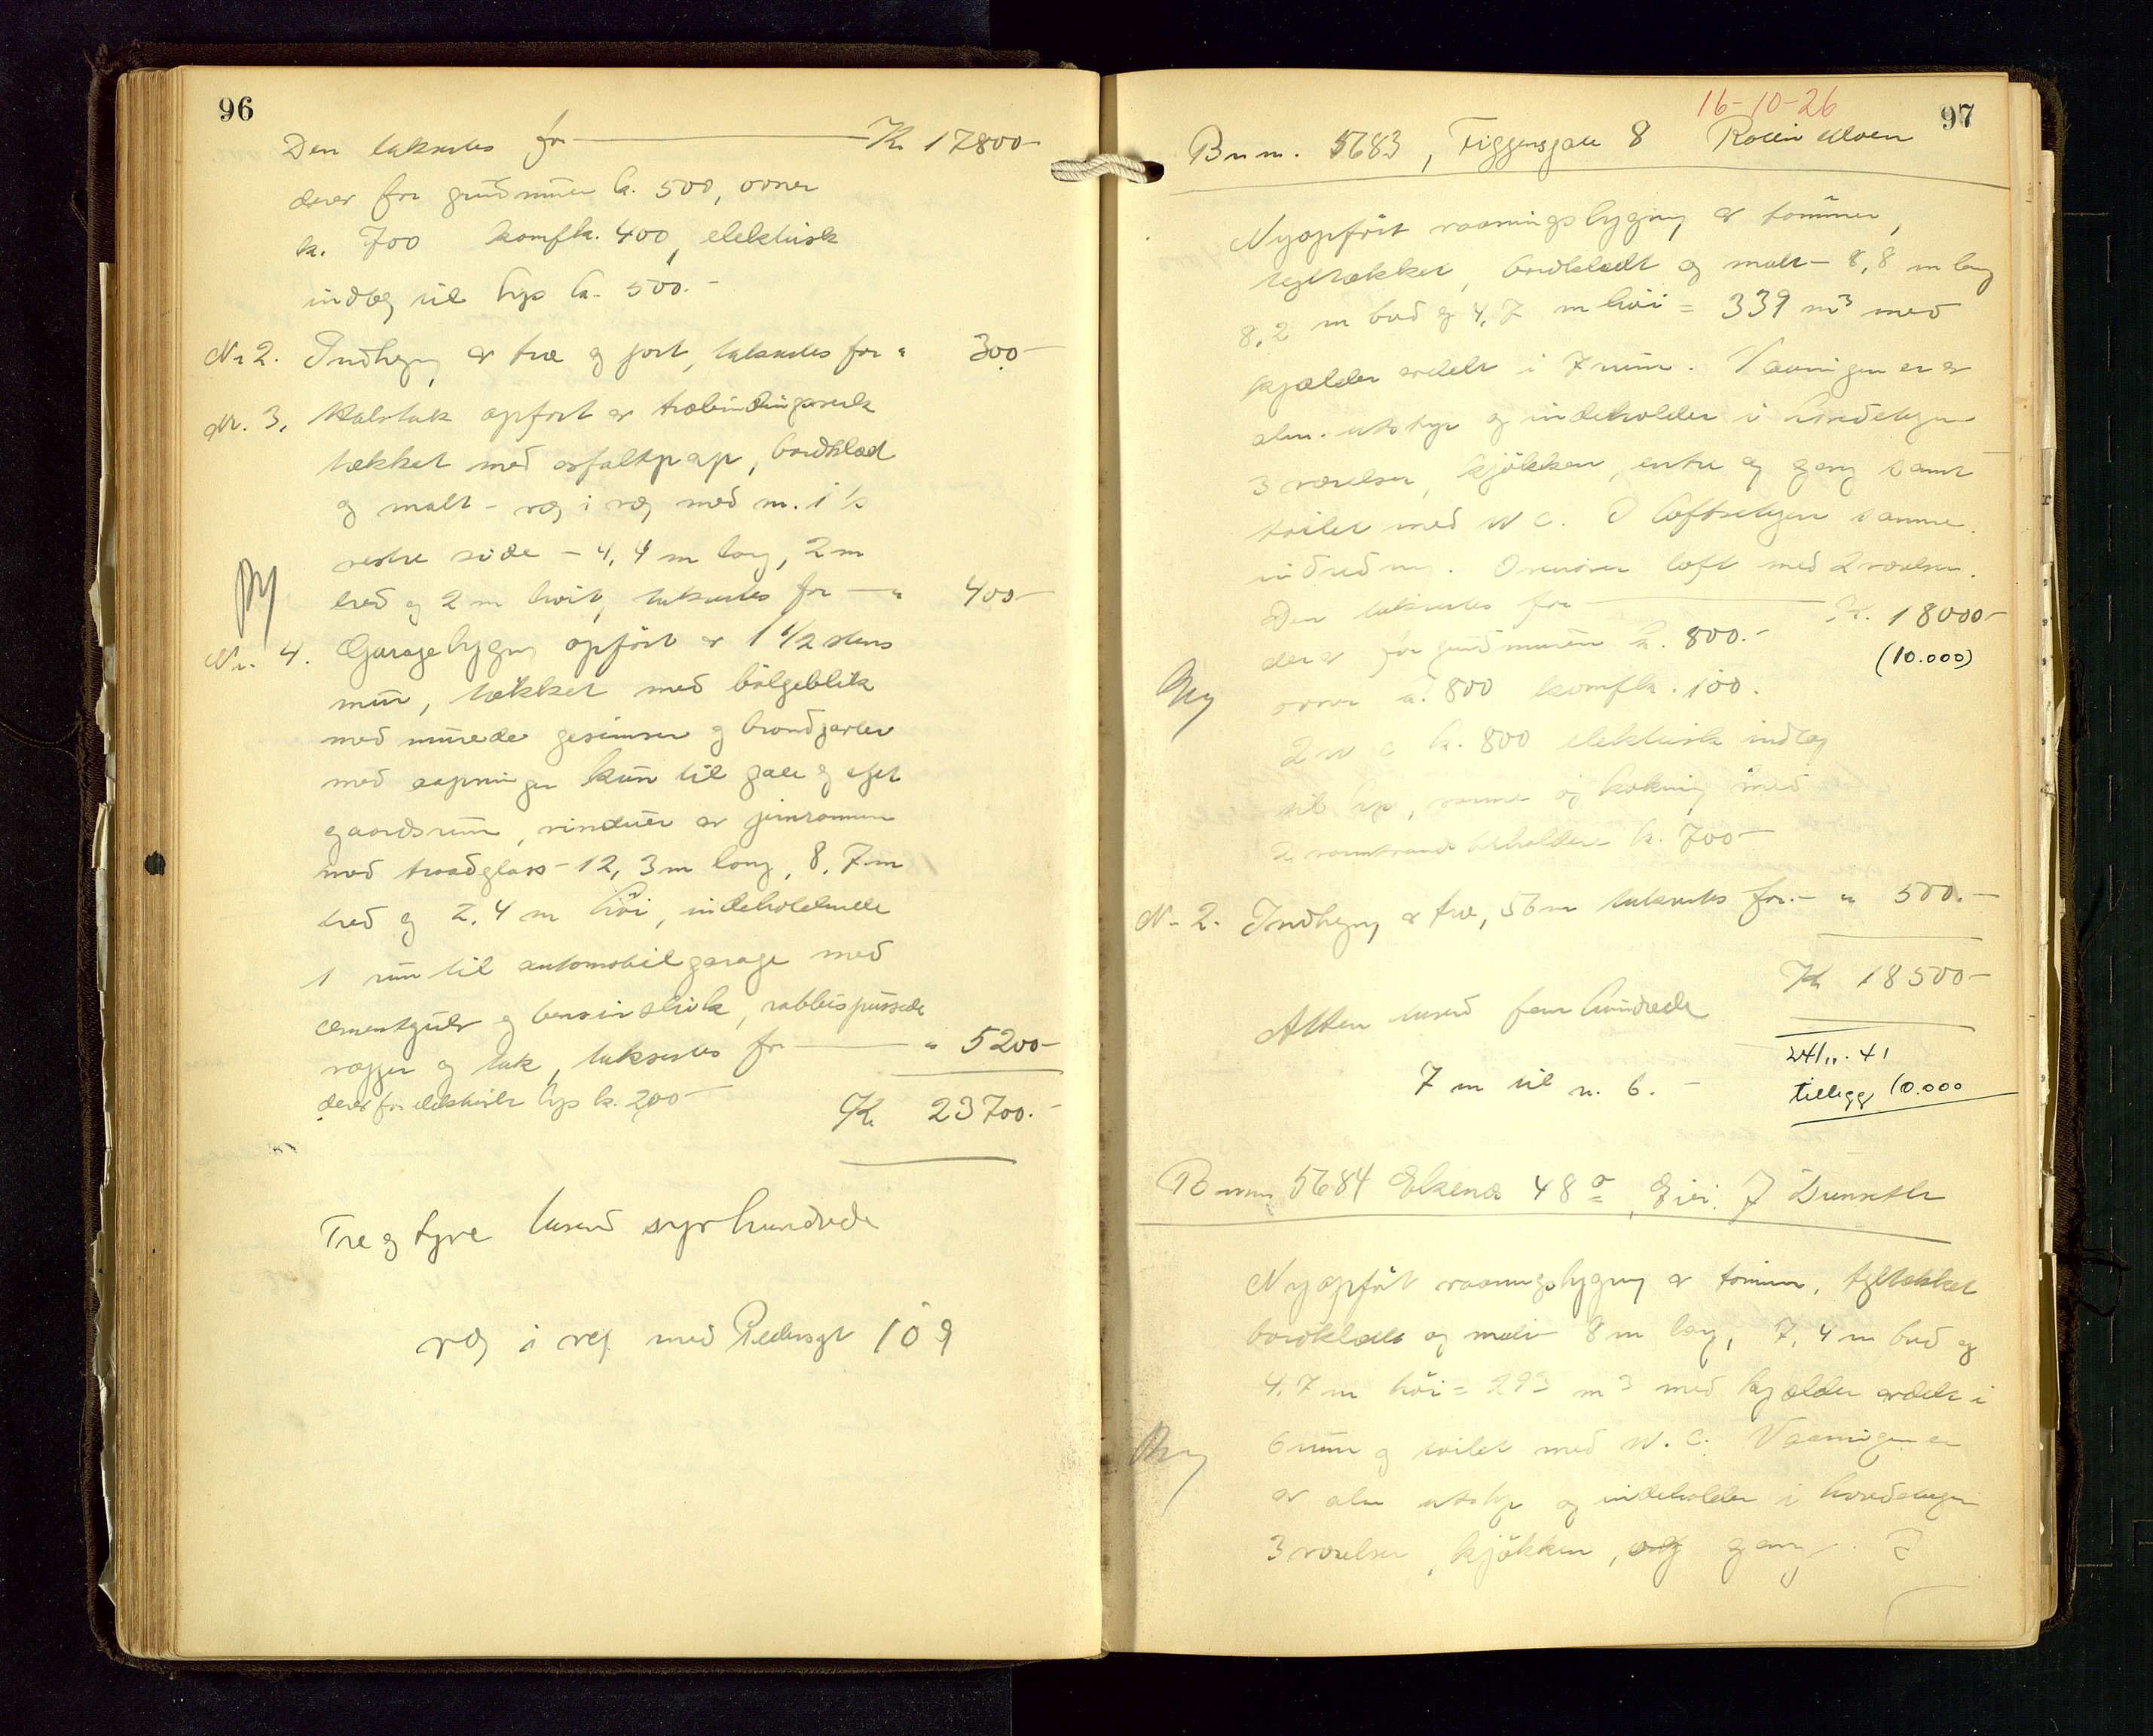 96
Den takseres for Kr 17800-
derav for grundmuren k. 500, ovner
k. 700 komfk. 400, elektrisk
indlæg til lys k. 500.-
Nr 2. Indhegn av træ og port, takseres for " 300-
Nr. 3. Halvtak opført av træbindingsverk
tækket med asfaltpap, bordklæd
og malt - væg i væg med nr. 1 i
vestre side - 4,4 m lang, 2 m
bred og 2 m høit, takseres for - " 400-
Ny
Nr. 4. Garagebygn opført av 1 1/2 stens
mur, tækket med bølgeblik
med murede gesimser og brandgavler
med aapninger kun til gate og eget
gaardsrum, vinduer av jernrammer
med traadglass - 12,3 m lang, 8,7 m
bred og 2,4 m høi, indeholdende
1 rum til automobilgarage med
cementgulv og bensin, rabbispussede
vægger og tak, takseres for " 5200-
derav for elektrisk lys k. 200-
Kr 23700.-
Tre og tyve tusend syvhundrede
væg i væg med Pedersgt 109
16-10-26
97
Bnum. 5683, Figgensgate 8
Nyopført vaaningsbygning av tømmer,
tegltækket, bordklædt og malt - 8,8 m lang
8,2 m bred og 4,7 m høi = 339 m3 med
kjælder avdelt i 7 rum. Vaaningen er av
alm. utstyr og indeholder i hovedetagen
3 værelser, kjøkken, entre og gang samt
toilet med W C. I loftsetagen samme
indredning. Ovenover loft med 2 værelser.
Den takseres for K. 18000-
derav for grundmuren k. 800.-
(10.000)
Ny
ovner k. 800 komfk. 100.
2 w c k. 800 elektrisk indlæg
til lys, varme og kokning med
2 varmtvandsbeholdere k. 700-
Nr 2. Indhegn av træ, 56 m takseres for.- " 500.-
Kr 18500-
Atten tusend fem hundrede
24/11. 41
7 m til n. 6.-
tillegg 10.000
Bnum 5684 Ekenes 48a, Eier. J
Nyopført vaaningsbygning av tømmer, tegltækket
bordklædt og malt - 8 m lang, 7,4 m bred og
4,7 m høi = 293 m3 med kjælder avdelt i
6 rum og toilet med W. C. Vaaningen er
Ny
av alm utstyr og indeholder i hovedetagen
3 værelser, kjøkken, og gang. I